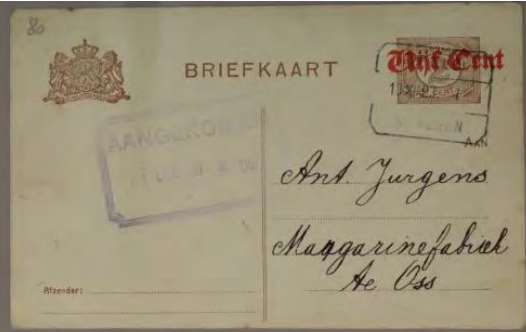 80
BRIEFKAART
Vijf Cent
CENT
AANGEKOMEN
AAN
Ant. Jurgens
Maggarinefabriek
te Oss
Afzender: